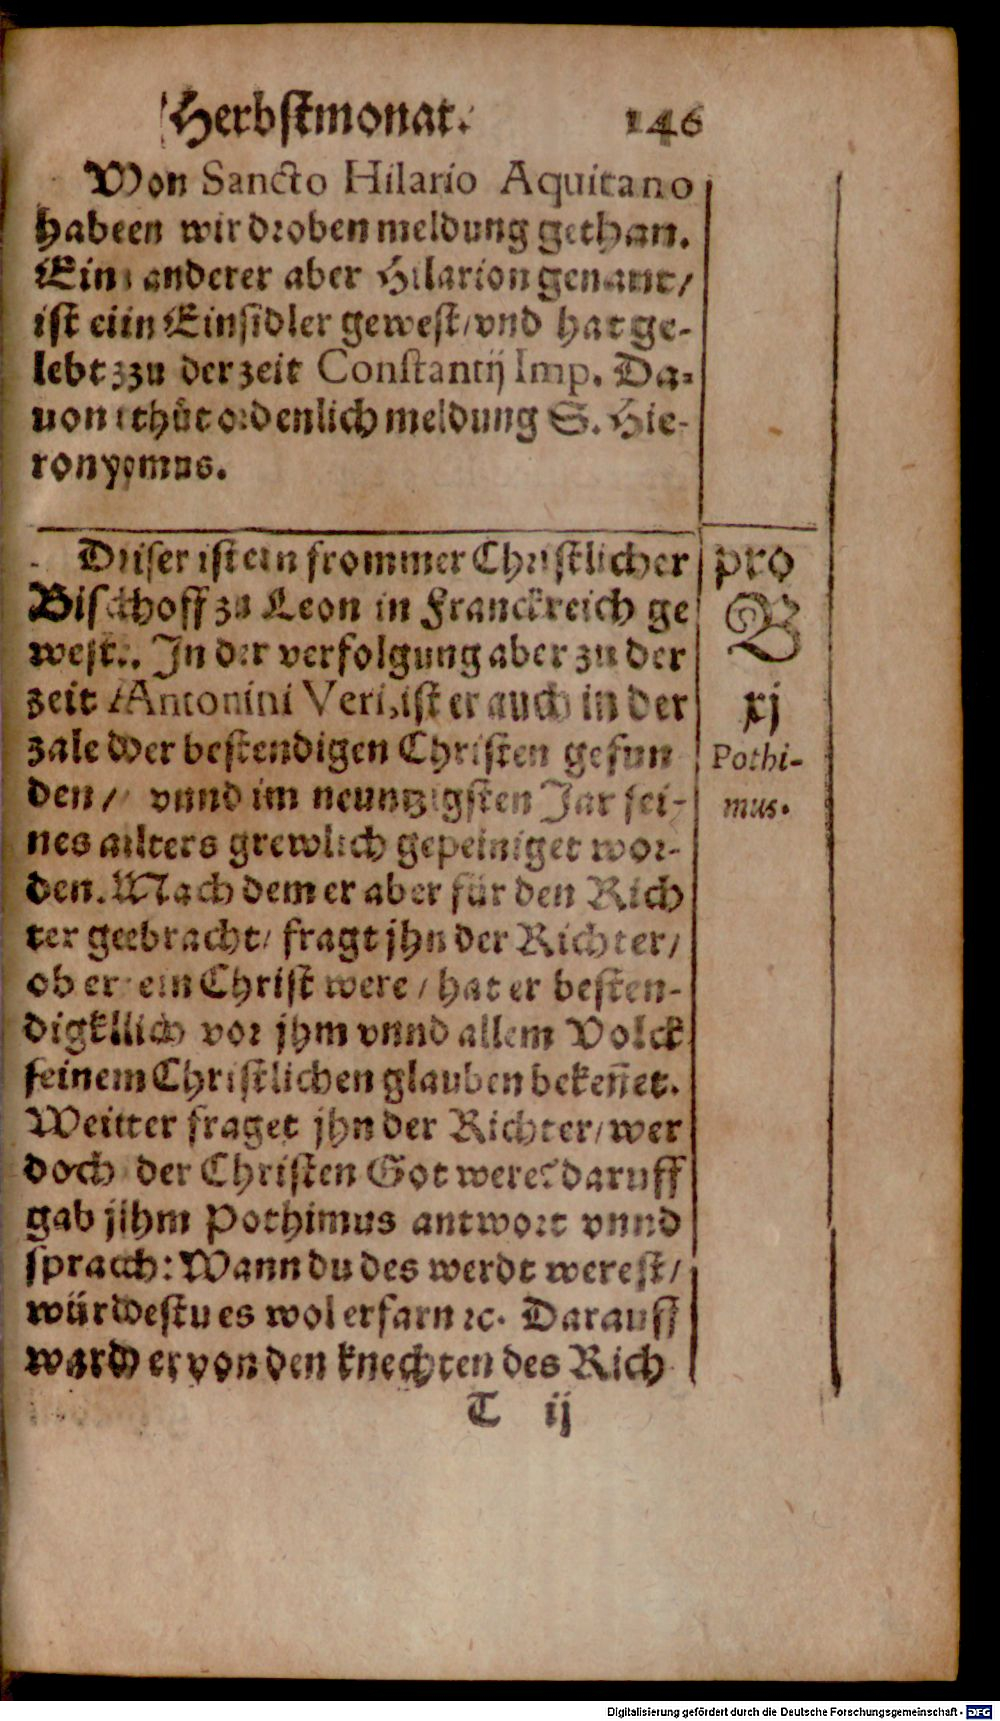 Herbstmonat. 146
Von Sancto Hilario Aquitano
habeen wir droben meldung gethan.
Ein anderer aber Hilarion genant/
ist eiin Einsidler gewest/vnd hat ge-
lebt zzu der zeit Constantij Imp. Da-
uon thůt ordenlich meldung S. Hie-
ronyymus.
Diiser ist ein frommer Christlicher
Bischhoff zu Leon in Franckreich ge
west.. In der verfolgung aber zu der
zeit Antonini Veri, ist er auch in der
zale der bestendigen Christen gefun
den/ vnnd im neuntzigsten Jar sei-
nes allters grewlich gepeiniget wor-
den. Nach dem er aber für den Rich
ter geebracht/ fragt jhn der Richter/
ob er ein Christ were/ hat er besten-
digkllich vor jhm vnnd allem Volck
seinem Christlichen glauben bekeñet.
Weitter fraget jhn der Richter/wer
doch der Christen Got were? daruff
gab jihm Pothimus antwort vnnd
spracch: Wann du des werdt werest/
würdestu es wol erfarn ꝛc. Darauff
ward er von den knechten des Rich
T ij
pro
B
xj
Pothi-
mus.
Digitalisierung gefördert durch die Deutsche Forschungsgemeinschaft - DFG